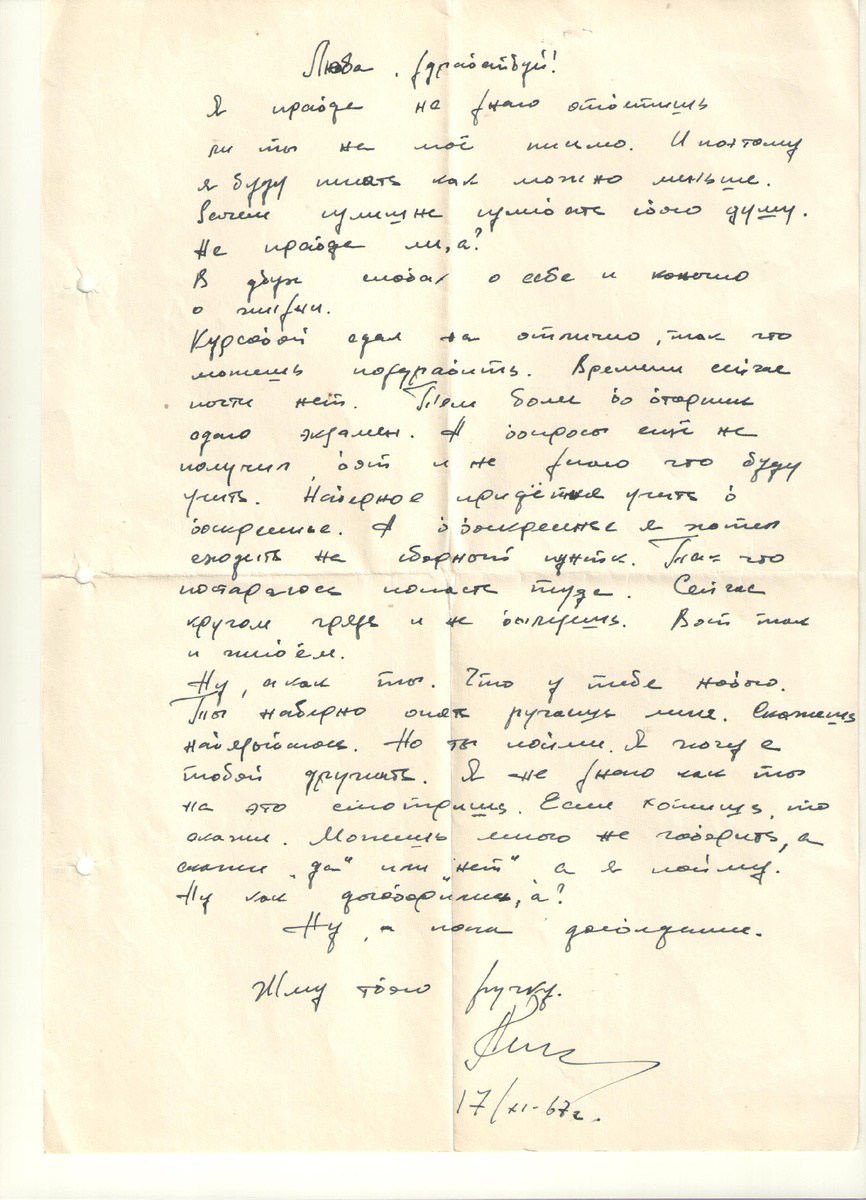 Люба, здравствуй!
Я правда не знаю ответишь
ли ты на моё письмо. И поэтому
я буду писать как можно меньше.
Зачем излишне изливать свою душу.
Не правда ли, а?
В двух словах о себе и конечно
о жизни.
Курсовой сдал на отлично, так что
можешь поздравить. Времени сейчас
почти нет. Тем более во вторник
сдаю экзамен. А вопросы ещё не
получил, вот и не знаю что буду
учить. Наверное придётся учить в
воскресенье. А в воскресенье я хотел
сходить на сборный пункт. Так что
постараюсь попасть туда. Сейчас
кругом грязь и не вылезешь. Вот так
и живём.
Ну, а как ты. Что у тебе нового.
Ты наверно опять ругаешь меня. Скажешь
Но ты пойми. Я хочу с
тобой дружить. Я не знаю как ты
на это смотришь. Если хочешь, то
скажи. Можешь много не говорить, а
скажи „да“ или „нет“, а я пойму.
Ну как договорились, а?
Ну, а пока досвидание.
Жму твою ручку.
17/XI-67г.